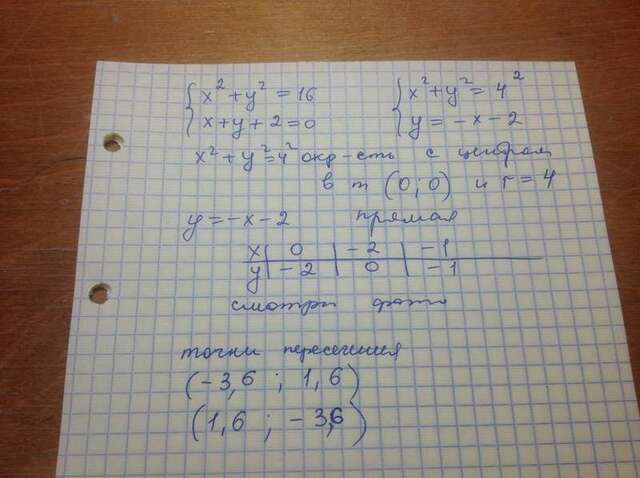 { x² + y² = 16
x + y + 2 = 0
{ x² + y² = 4²
y = -x - 2
x² + y² = 4² окр-сть с центром
в т (0; 0) и r = 4
y = -x - 2 прямая
x | 0 | -2 | -1
y | -2 | 0 | -1
смотри фото
точки пересечения
(-3,6 ; 1,6)
(1,6 ; -3,6)